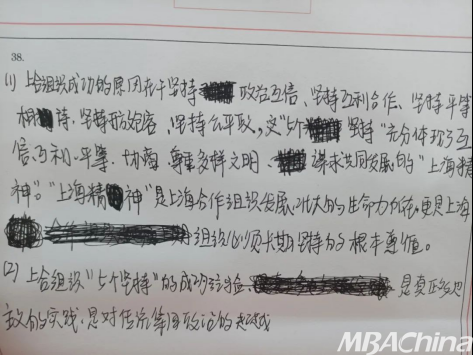 38.
(1) 上合组织成功的原因在于坚持政治互信、坚持互利合作、坚持平等
相待、坚持开放包容、坚持公平取,这"5个坚持"充分体现了互
信、互利、平等、协商、尊重多样文明、谋求共同发展的"上海精
神"。"上海精神"是上海合作组织发展壮大的生命力所在,更是上海
组织必须长期坚持的根本遵循。
(2) 上合组织"5个坚持"的成功经验 是真正多边
主义的实践,是对传统 政治的超越
MBAChina